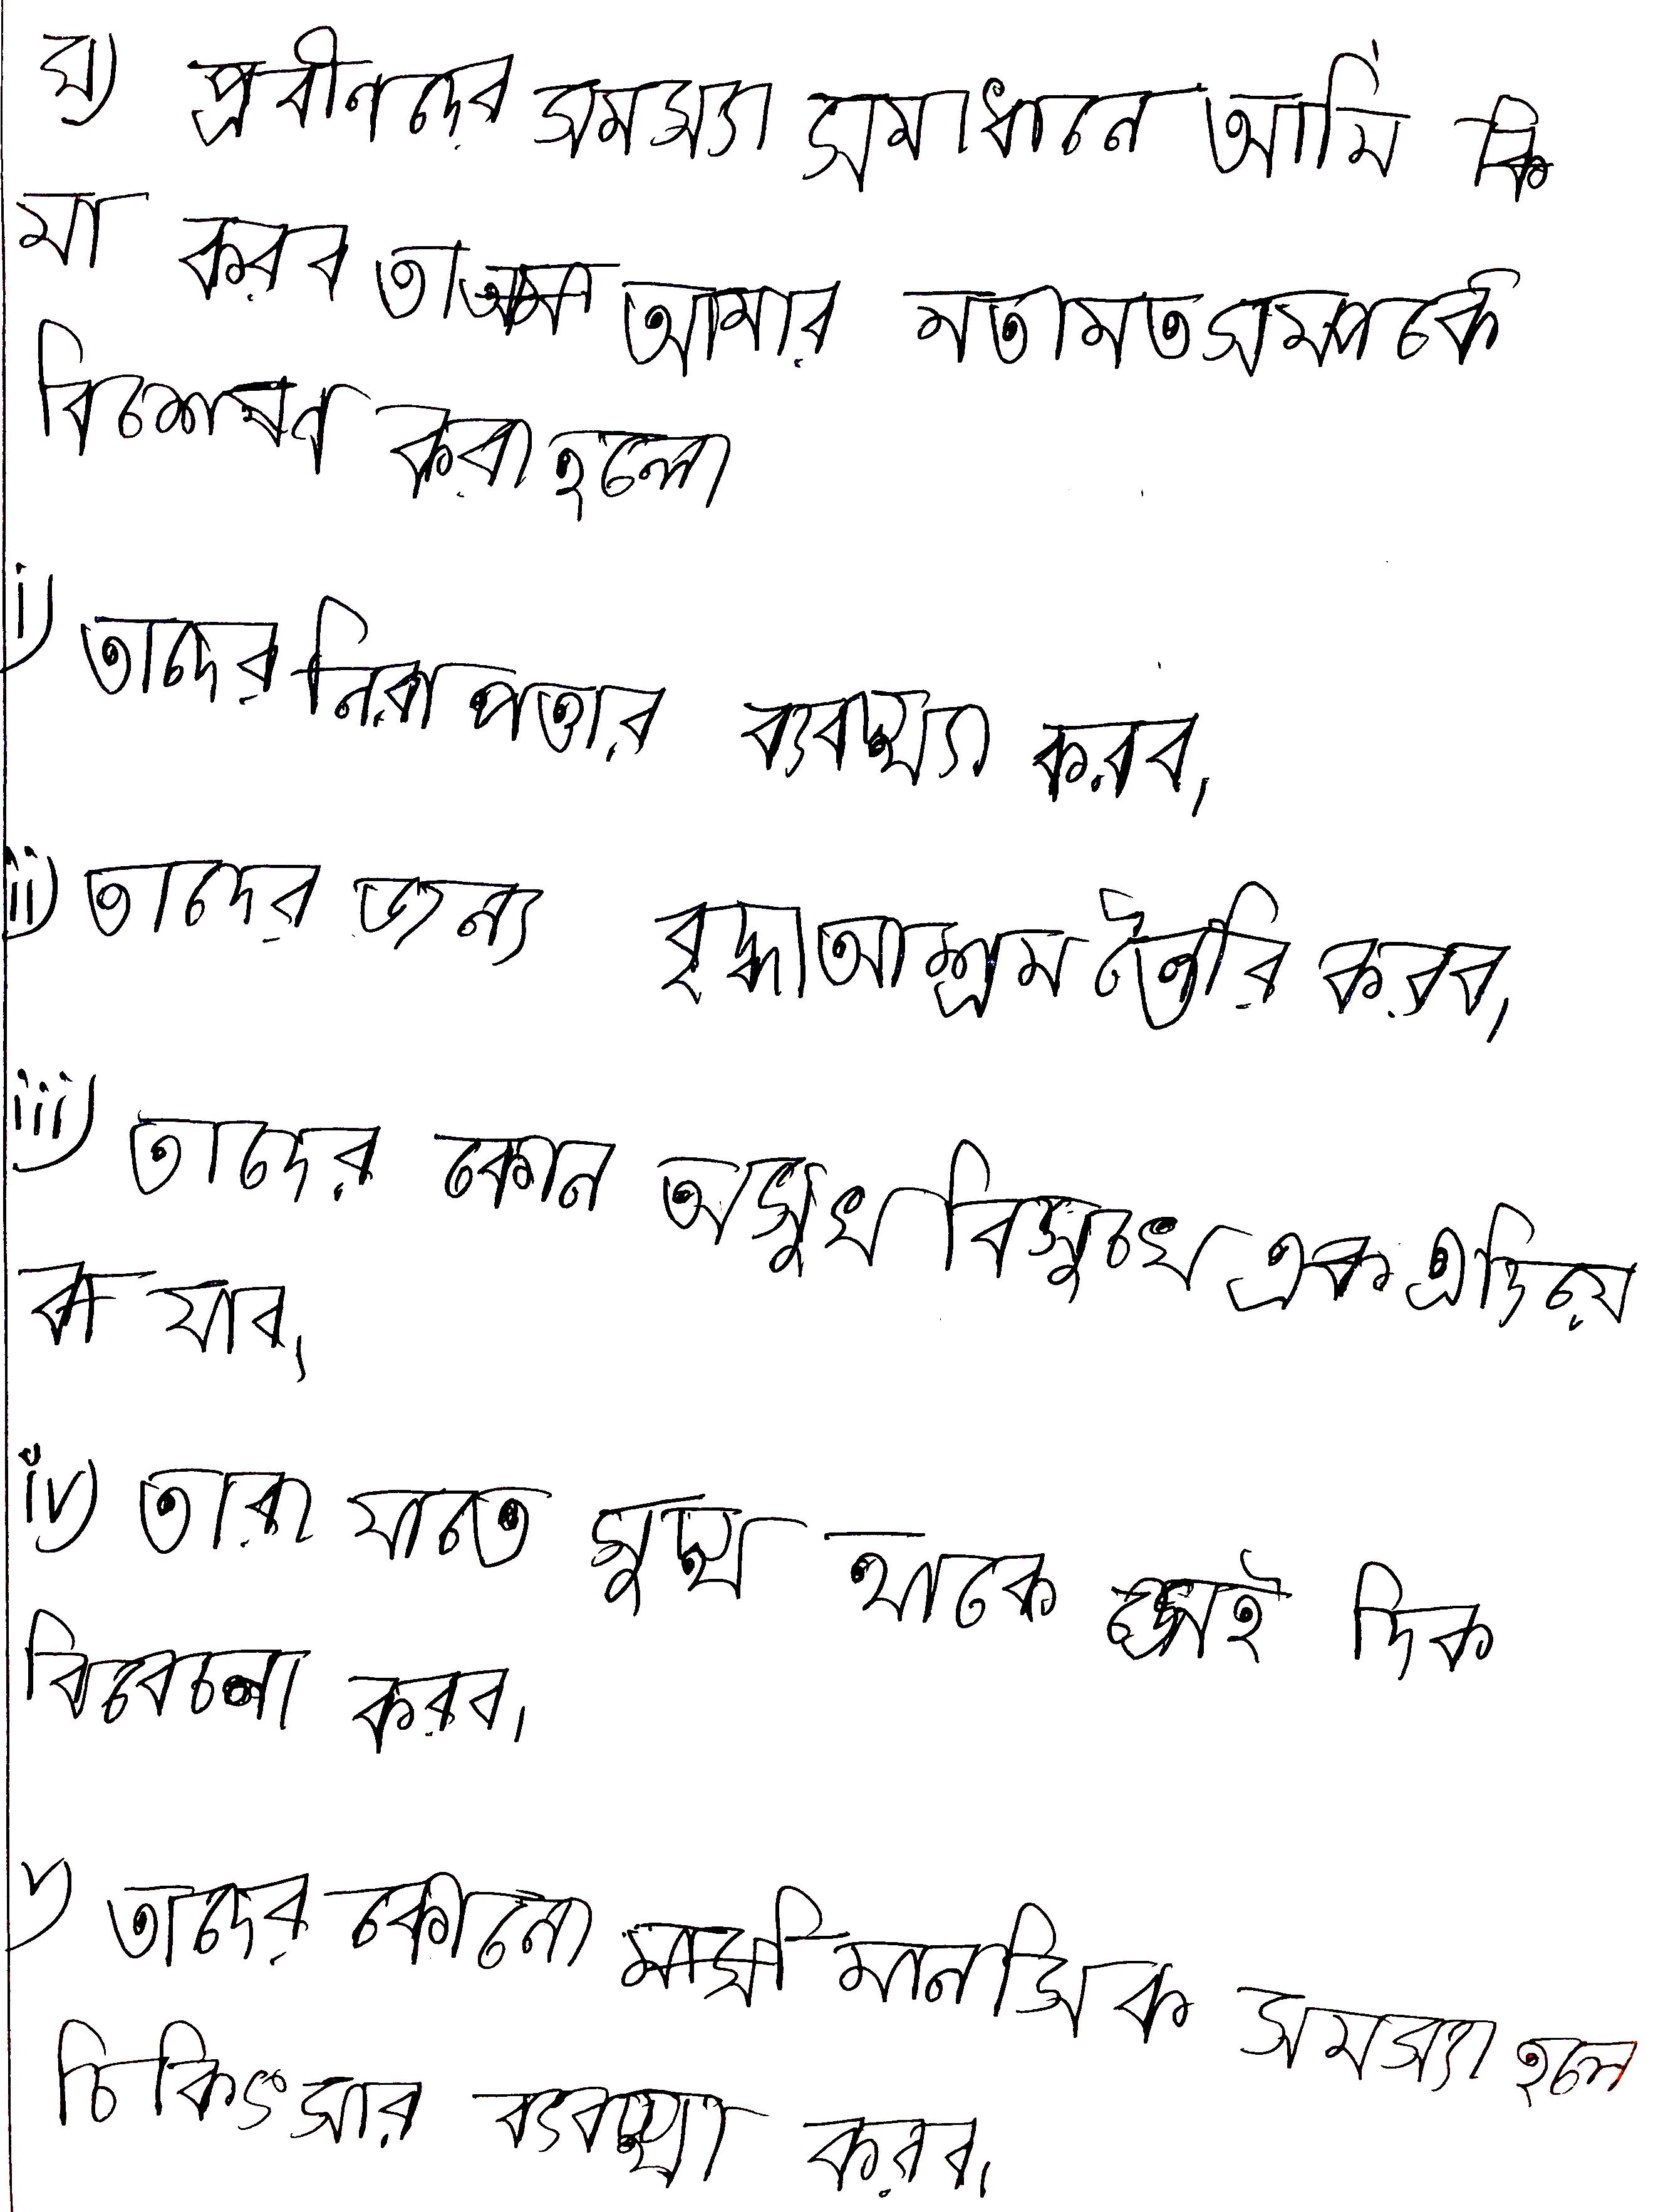 ঘ) প্রবীণদের সমস্যা সমাধানে আমি কি
যা করব তা আমার মতামত সম্পর্কে
বিশ্লেষণ করা হলো
i) তাদের নিরাপত্তার ব্যবস্থ্যা করব,
ii) তাদের জন্য বৃদ্ধাআশ্রম তৈরি করব,
iii) তাদের কোন অসুখ বিসুখে এক এগিয়ে
যাব,
iv) তারা যাতে সুস্থ থাকে সেই দিক
বিবেচনা করব,
v) তাদের কোনো মানসিক সমস্যা হলে
চিকিৎসার ব্যবস্থা করব,